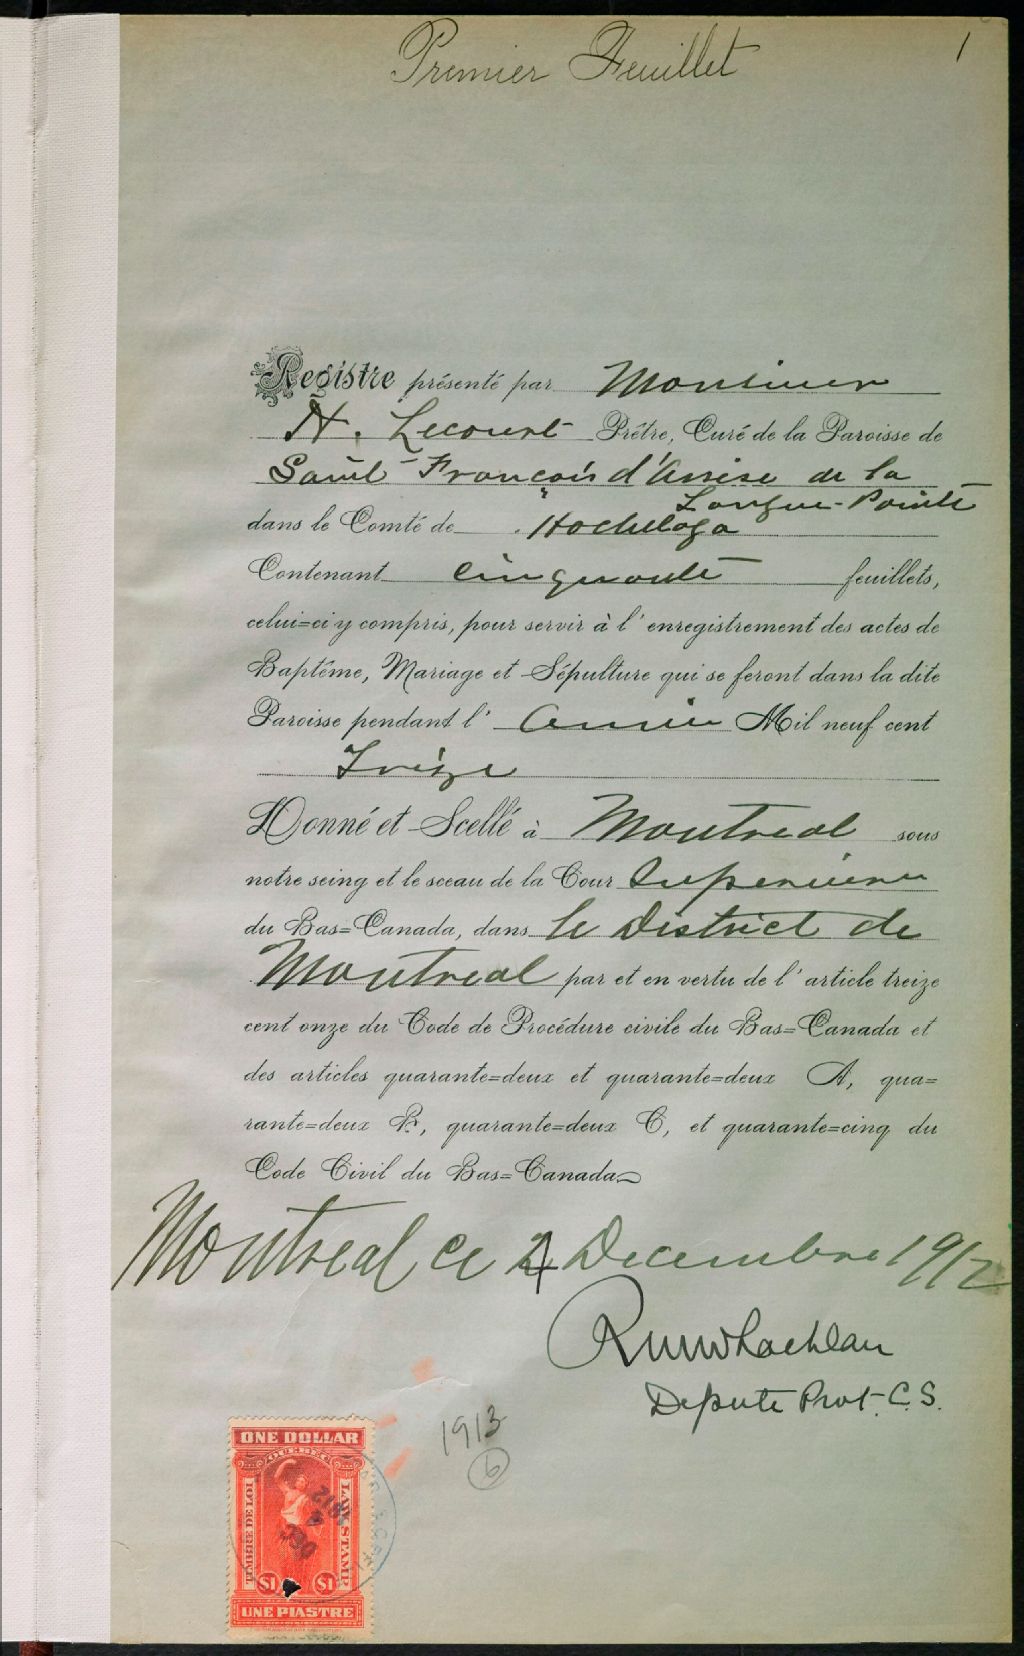 Premier Feuillet
1
Registre présenté par Monsieur
N. Lecourt Prêtre, Curé de la Paroisse de
Saint-François d'Assise de la
Longue-Pointe
dans le Comté de Hochelaga
Contenant cinquante feuillets,
celui=ci y compris, pour servir à l'enregistrement des actes de
Baptême, Mariage et Sépulture qui se feront dans la dite
Paroisse pendant l' année Mil neuf cent
Treize
Donné et Scellé à Montreal sous
notre seing et le sceau de la Cour Superieure
du Bas=Canada, dans le District de
Montreal par et en vertu de l'article treize
cent onze du Code de Procédure civile du Bas=Canada et
des articles quarante=deux et quarante=deux A, qua=
rante=deux B, quarante=deux C, et quarante=cinq du
Code Civil du Bas=Canada
Montreal ce 4 Decembre 1912
Depute Prot. C.S.
1913
6
ONE DOLLAR
QUEBEC
TIMBRE DE LOI
LAW STAMP
DEC 4 1912
$1 $1
UNE PIASTRE